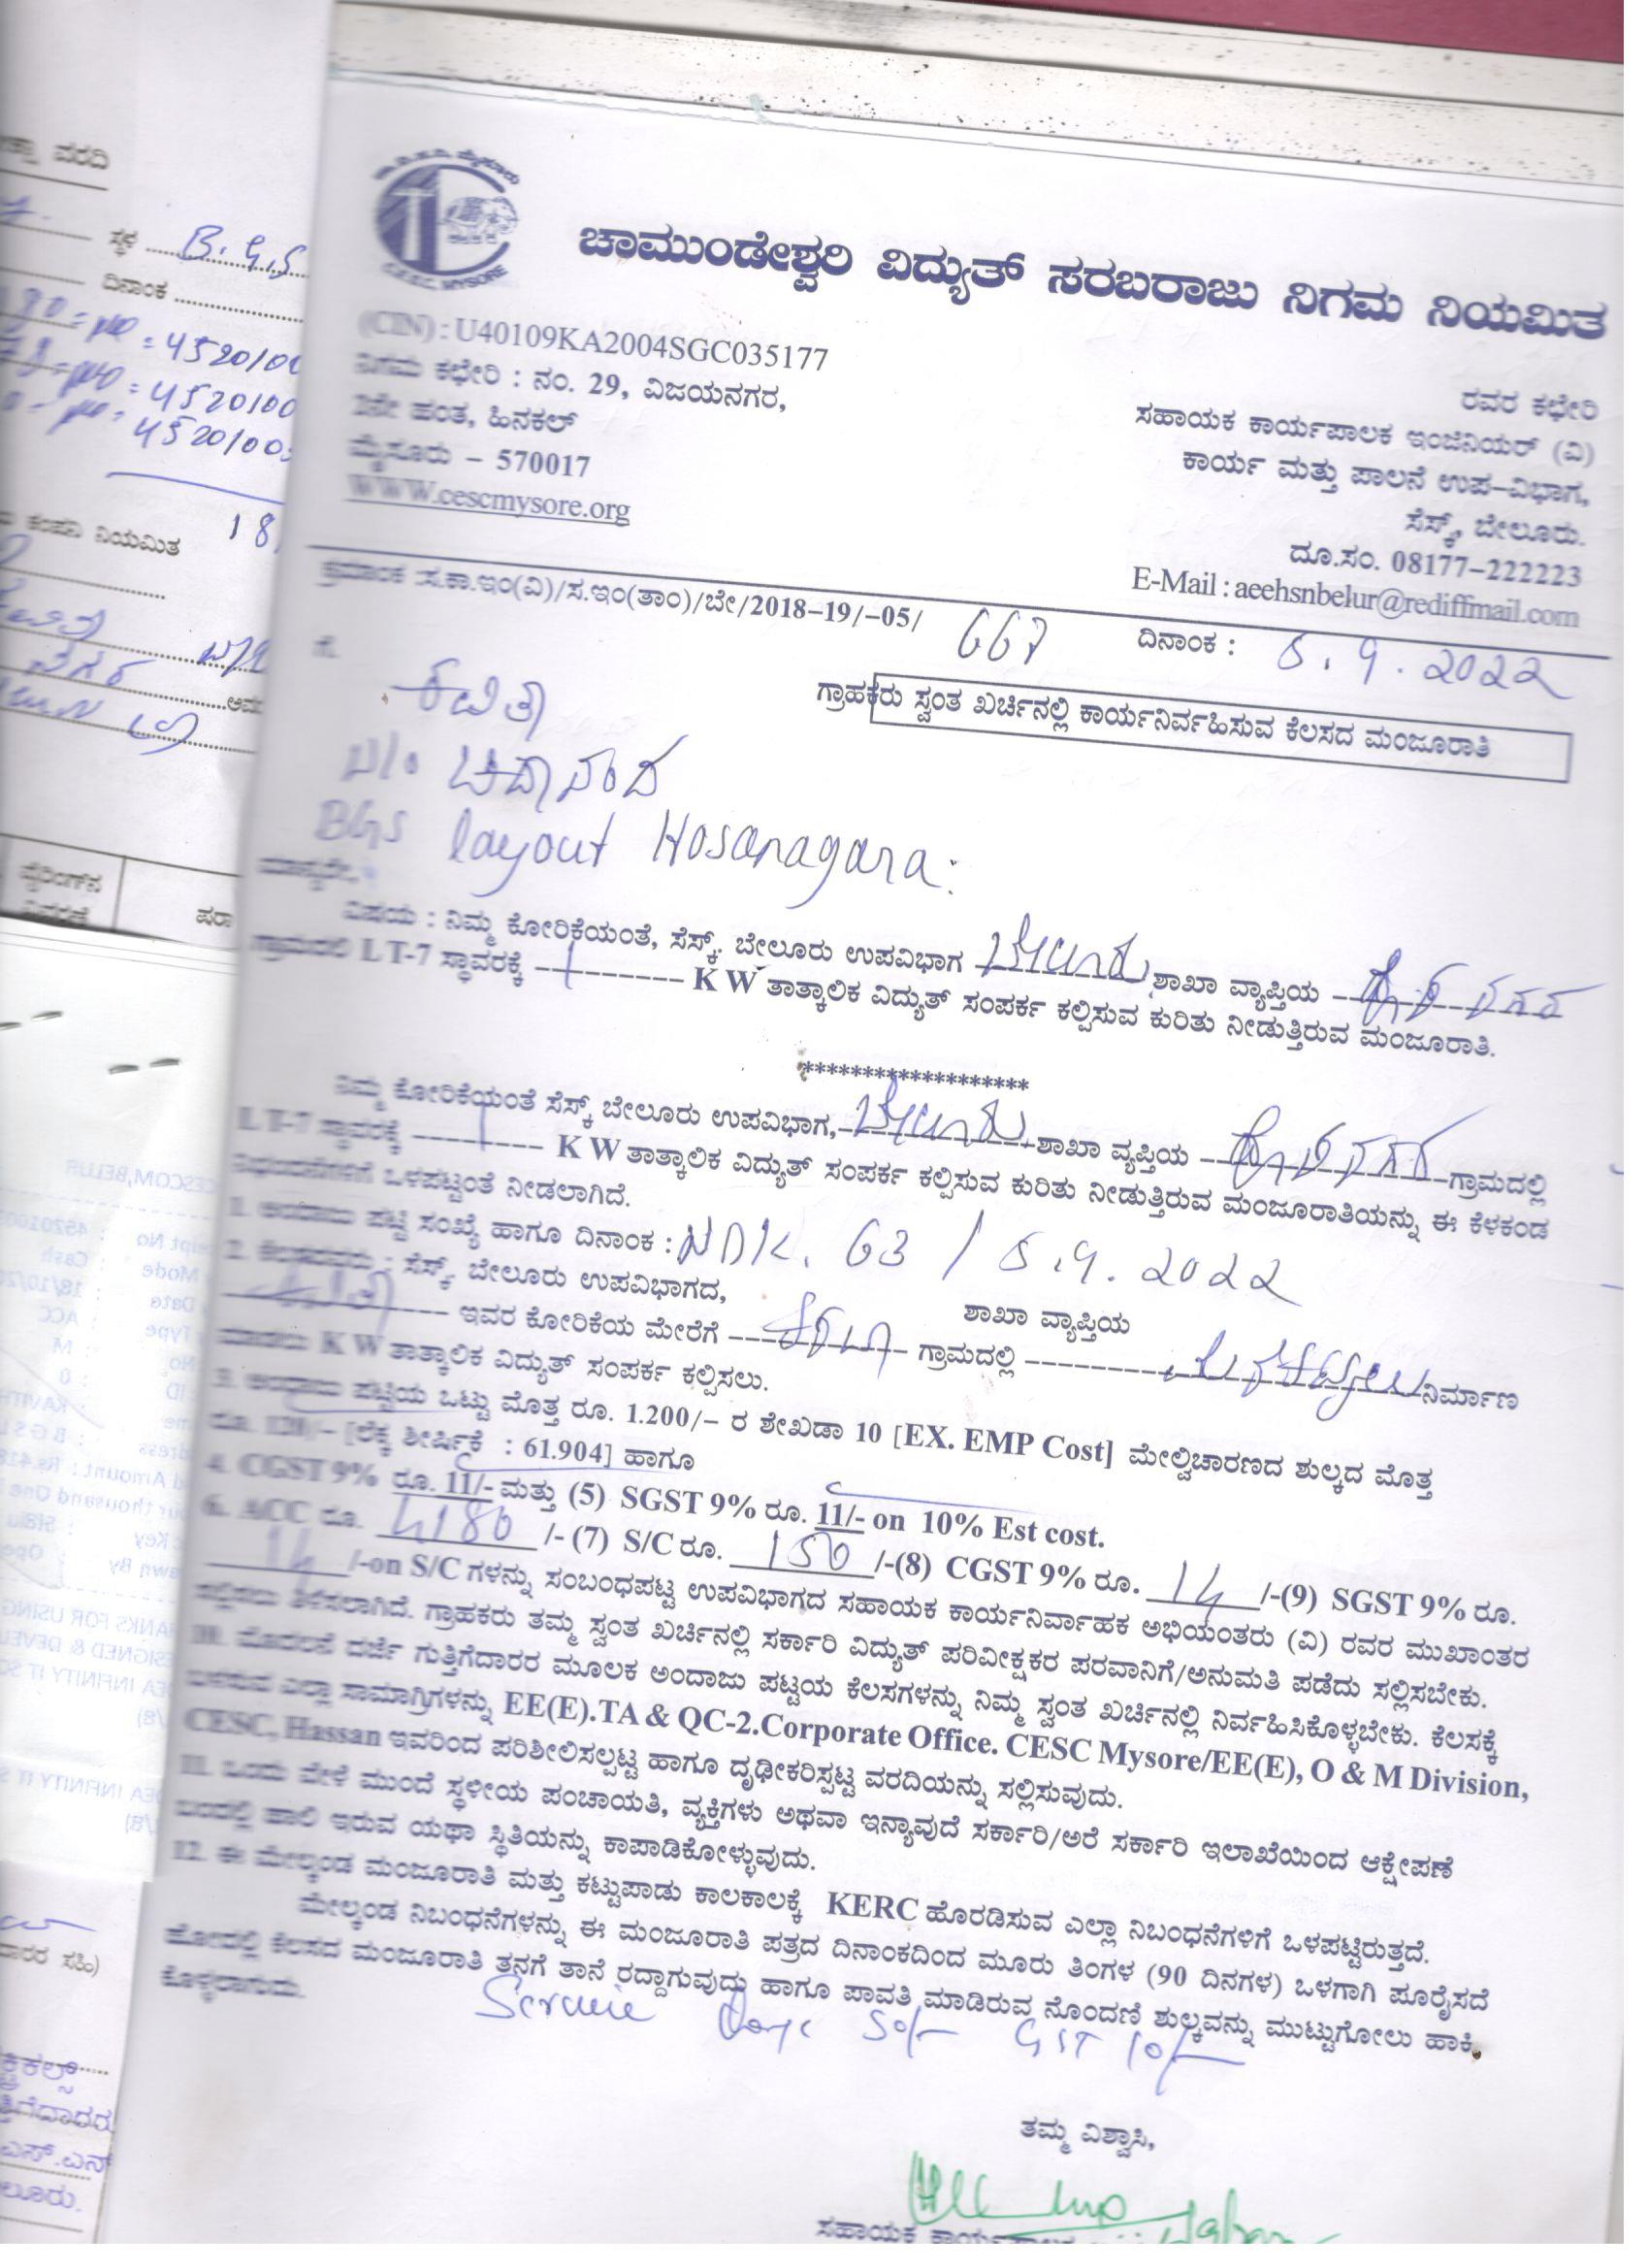 ಚಾಮುಂಡೇಶ್ವರಿ ವಿದ್ಯುತ್ ಸರಬರಾಜು ನಿಗಮ ನಿಯಮಿತ
(CIN) : U40109KA2004SGC035177
ನಿಗಮ ಕಛೇರಿ : ನಂ. 29, ವಿಜಯನಗರ,
2ನೇ ಹಂತ, ಹಿನಕಲ್
ಮೈಸೂರು – 570017
WWW.cescmysore.org
ರವರ ಕಛೇರಿ
ಸಹಾಯಕ ಕಾರ್ಯಪಾಲಕ ಇಂಜಿನಿಯರ್ (ವಿ)
ಕಾರ್ಯ ಮತ್ತು ಪಾಲನೆ ಉಪ–ವಿಭಾಗ,
ಸೆಸ್ಕ್, ಬೇಲೂರು.
ದೂ.ಸಂ. 08177–222223
E-Mail : aeehsnbelur@rediffmail.com
ಕ್ರಮಾಂಕ :ಸ.ಕಾ.ಇಂ(ವಿ)/ಸ.ಇಂ(ತಾಂ)/ಬೇ/2018–19/–05/ 667 ದಿನಾಂಕ : 5.9.2022
ಗೆ.
ಗ್ರಾಹಕರು ಸ್ವಂತ ಖರ್ಚಿನಲ್ಲಿ ಕಾರ್ಯನಿರ್ವಹಿಸುವ ಕೆಲಸದ ಮಂಜೂರಾತಿ
ಕವಿತಾ
BGS layout Hosanagara.
ಮಾನ್ಯರೇ,
ವಿಷಯ : ನಿಮ್ಮ ಕೋರಿಕೆಯಂತೆ, ಸೆಸ್ಕ್, ಬೇಲೂರು ಉಪವಿಭಾಗ ಶಾಖಾ ವ್ಯಾಪ್ತಿಯ
ಗ್ರಾಮದಲಿ LT-7 ಸ್ಥಾವರಕ್ಕೆ 1 KW ತಾತ್ಕಾಲಿಕ ವಿದ್ಯುತ್ ಸಂಪರ್ಕ ಕಲ್ಪಿಸುವ ಕುರಿತು ನೀಡುತ್ತಿರುವ ಮಂಜೂರಾತಿ.
*******************
ನಿಮ್ಮ ಕೋರಿಕೆಯಂತೆ ಸೆಸ್ಕ್ ಬೇಲೂರು ಉಪವಿಭಾಗ, ಶಾಖಾ ವ್ಯಪ್ತಿಯ ಗ್ರಾಮದಲ್ಲಿ
LT-7 ಸ್ಥಾವರಕ್ಕೆ 1 KW ತಾತ್ಕಾಲಿಕ ವಿದ್ಯುತ್ ಸಂಪರ್ಕ ಕಲ್ಪಿಸುವ ಕುರಿತು ನೀಡುತ್ತಿರುವ ಮಂಜೂರಾತಿಯನ್ನು ಈ ಕೆಳಕಂಡ
ನಿಭಂದನೆಗಳಿಗೆ ಒಳಪಟ್ಟಂತೆ ನೀಡಲಾಗಿದೆ.
1. ಅಂದಾಜು ಪಟ್ಟಿ ಸಂಖ್ಯೆ ಹಾಗೂ ದಿನಾಂಕ : NDK. 63 / 5.9.2022
2. ಕೆಲಸದವರು : ಸೆಸ್ಕ್, ಬೇಲೂರು ಉಪವಿಭಾಗದ, ಶಾಖಾ ವ್ಯಾಪ್ತಿಯ
ಇವರ ಕೋರಿಕೆಯ ಮೇರೆಗೆ ಗ್ರಾಮದಲ್ಲಿ ನಿರ್ಮಾಣ
ಮಾಡಲು KW ತಾತ್ಕಾಲಿಕ ವಿದ್ಯುತ್ ಸಂಪರ್ಕ ಕಲ್ಪಿಸಲು.
3. ಅಂದಾಜು ಪಟ್ಟಿಯ ಒಟ್ಟು ಮೊತ್ತ ರೂ. 1.200/– ರ ಶೇಖಡಾ 10 [EX. EMP Cost] ಮೇಲ್ವಿಚಾರಣದ ಶುಲ್ಕದ ಮೊತ್ತ
ರೂ. 120/– [ಲೆಕ್ಕ ಶೀರ್ಷಿಕೆ : 61.904] ಹಾಗೂ
4. CGST 9% ರೂ. 11/- ಮತ್ತು (5) SGST 9% ರೂ. 11/- on 10% Est cost.
6. ACC ರೂ. 4180 /- (7) S/C ರೂ. 150 /-(8) CGST 9% ರೂ. 14 /-(9) SGST 9% ರೂ.
14 /-on S/C ಗಳನ್ನು ಸಂಬಂಧಪಟ್ಟ ಉಪವಿಭಾಗದ ಸಹಾಯಕ ಕಾರ್ಯನಿರ್ವಾಹಕ ಅಭಿಯಂತರು (ವಿ) ರವರ ಮುಖಾಂತರ
ಸಲ್ಲಿಸಲು ತಿಳಿಸಲಾಗಿದೆ. ಗ್ರಾಹಕರು ತಮ್ಮ ಸ್ವಂತ ಖರ್ಚಿನಲ್ಲಿ ಸರ್ಕಾರಿ ವಿದ್ಯುತ್ ಪರಿವೀಕ್ಷಕರ ಪರವಾನಿಗೆ/ಅನುಮತಿ ಪಡೆದು ಸಲ್ಲಿಸಬೇಕು.
10. ಮೊದಲನೆ ದರ್ಜೆ ಗುತ್ತಿಗೆದಾರರ ಮೂಲಕ ಅಂದಾಜು ಪಟ್ಟಿಯ ಕೆಲಸಗಳನ್ನು ನಿಮ್ಮ ಸ್ವಂತ ಖರ್ಚಿನಲ್ಲಿ ನಿರ್ವಹಿಸಿಕೊಳ್ಳಬೇಕು. ಕೆಲಸಕ್ಕೆ
ಬಳಸುವ ಎಲ್ಲಾ ಸಾಮಾಗ್ರಿಗಳನ್ನು EE(E).TA & QC-2.Corporate Office. CESC Mysore/EE(E), O & M Division,
CESC, Hassan ಇವರಿಂದ ಪರಿಶೀಲಿಸಲ್ಪಟ್ಟ ಹಾಗೂ ದೃಢೀಕರಿಸ್ಪಟ್ಟ ವರದಿಯನ್ನು ಸಲ್ಲಿಸುವುದು.
11. ಒಂದು ವೇಳೆ ಮುಂದೆ ಸ್ಥಳೀಯ ಪಂಚಾಯತಿ, ವ್ಯಕ್ತಿಗಳು ಅಥವಾ ಇನ್ಯಾವುದೆ ಸರ್ಕಾರಿ/ಅರೆ ಸರ್ಕಾರಿ ಇಲಾಖೆಯಿಂದ ಆಕ್ಷೇಪಣೆ
ಬಂದಲ್ಲಿ ಹಾಲಿ ಇರುವ ಯಥಾ ಸ್ಥಿತಿಯನ್ನು ಕಾಪಾಡಿಕೋಳ್ಳುವುದು.
12. ಈ ಮೇಲ್ಕಂಡ ಮಂಜೂರಾತಿ ಮತ್ತು ಕಟ್ಟುಪಾಡು ಕಾಲಕಾಲಕ್ಕೆ KERC ಹೊರಡಿಸುವ ಎಲ್ಲಾ ನಿಬಂಧನೆಗಳಿಗೆ ಒಳಪಟ್ಟಿರುತ್ತದೆ.
ಮೇಲ್ಕಂಡ ನಿಬಂಧನೆಗಳನ್ನು ಈ ಮಂಜೂರಾತಿ ಪತ್ರದ ದಿನಾಂಕದಿಂದ ಮೂರು ತಿಂಗಳ (90 ದಿನಗಳ) ಒಳಗಾಗಿ ಪೂರೈಸದೆ
ಹೋದಲ್ಲಿ ಕೆಲಸದ ಮಂಜೂರಾತಿ ತನಗೆ ತಾನೆ ರದ್ದಾಗುವುದು ಹಾಗೂ ಪಾವತಿ ಮಾಡಿರುವ ನೊಂದಣಿ ಶುಲ್ಕವನ್ನು ಮುಟ್ಟುಗೋಲು ಹಾಕಿ
ಕೊಳ್ಳಲಾಗುದು.
50/- GST 10/-
ತಮ್ಮ ವಿಶ್ವಾಸಿ,
ವರದಿ
ಸ್ಥಳ B.G.S
ದಿನಾಂಕ
ಕಂಪನಿ ನಿಯಮಿತ
ವೈರಿಂಗ್‌ನ
ವಿವರಣೆ
CESCOM,BELUR